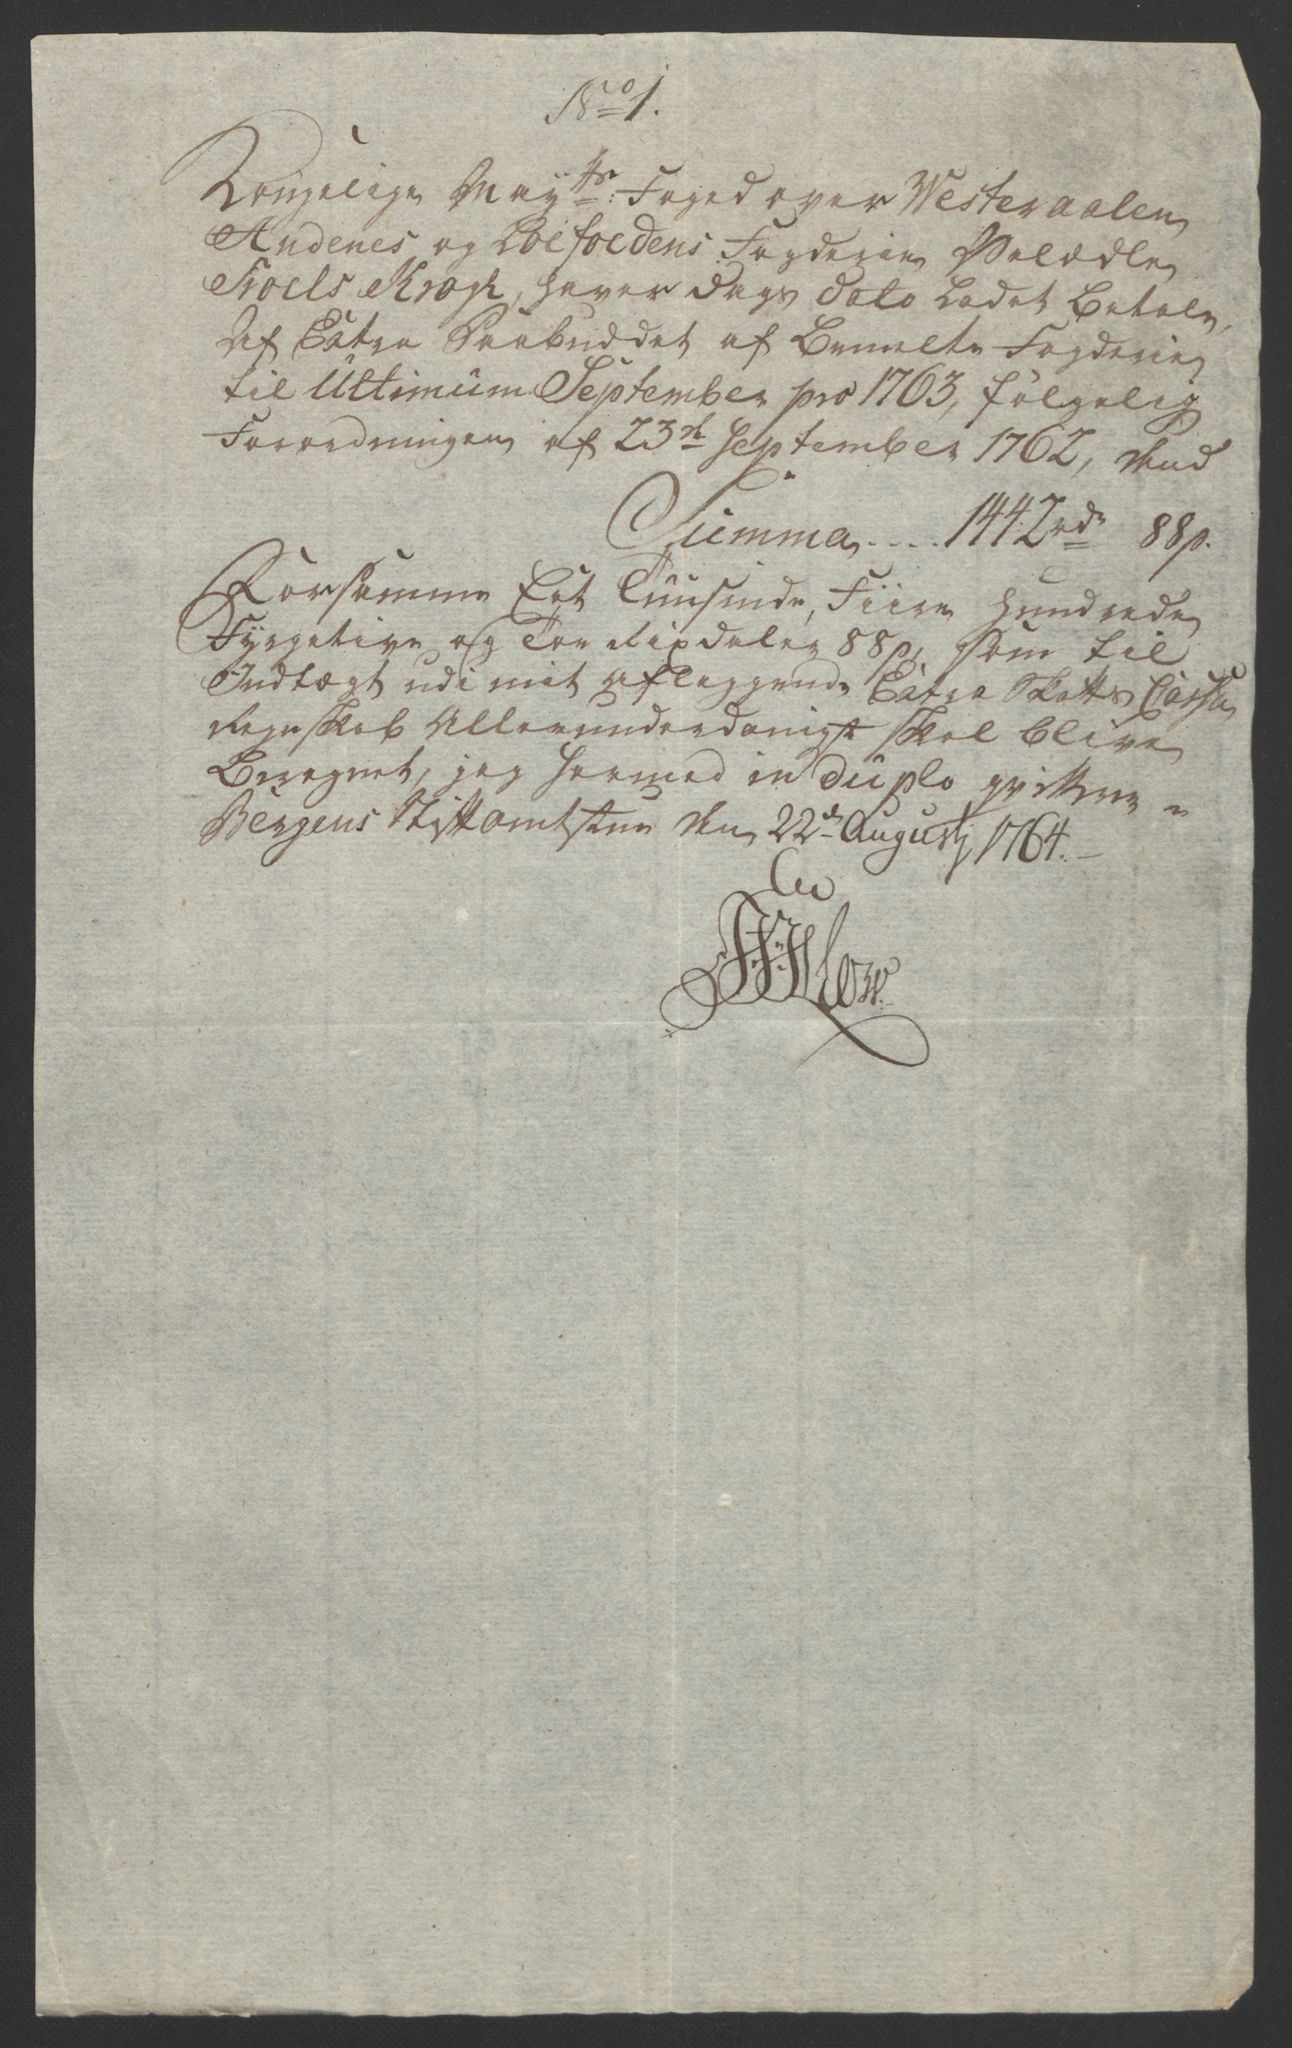 No 1.
Kongelige Mayts: Foged over Westeraalen
Andenes og Loefoedens Fogderie Velædle
Troels Krogh, haver dags dato ladet betale,
Af Extra Paabuddet af bemelte Fogderie
til Ultimum September pro 1763, følgelig
Forordningen af 23de September 1762, med
Summa .... 1442rdr 88s.
Forsamme Eet Tuusinde, Fiire hundrede
Fyrgetive og Toe Rixdaler 88s, som til
Indtægt udi mit aflæggende Extra Skatts Cassa
Regnskab Allerunderdanigst skal blive
Beregnet, jeg hermed in duplo qvitterer
Bergens Stiftamtstue den 22de Augustj 1764.